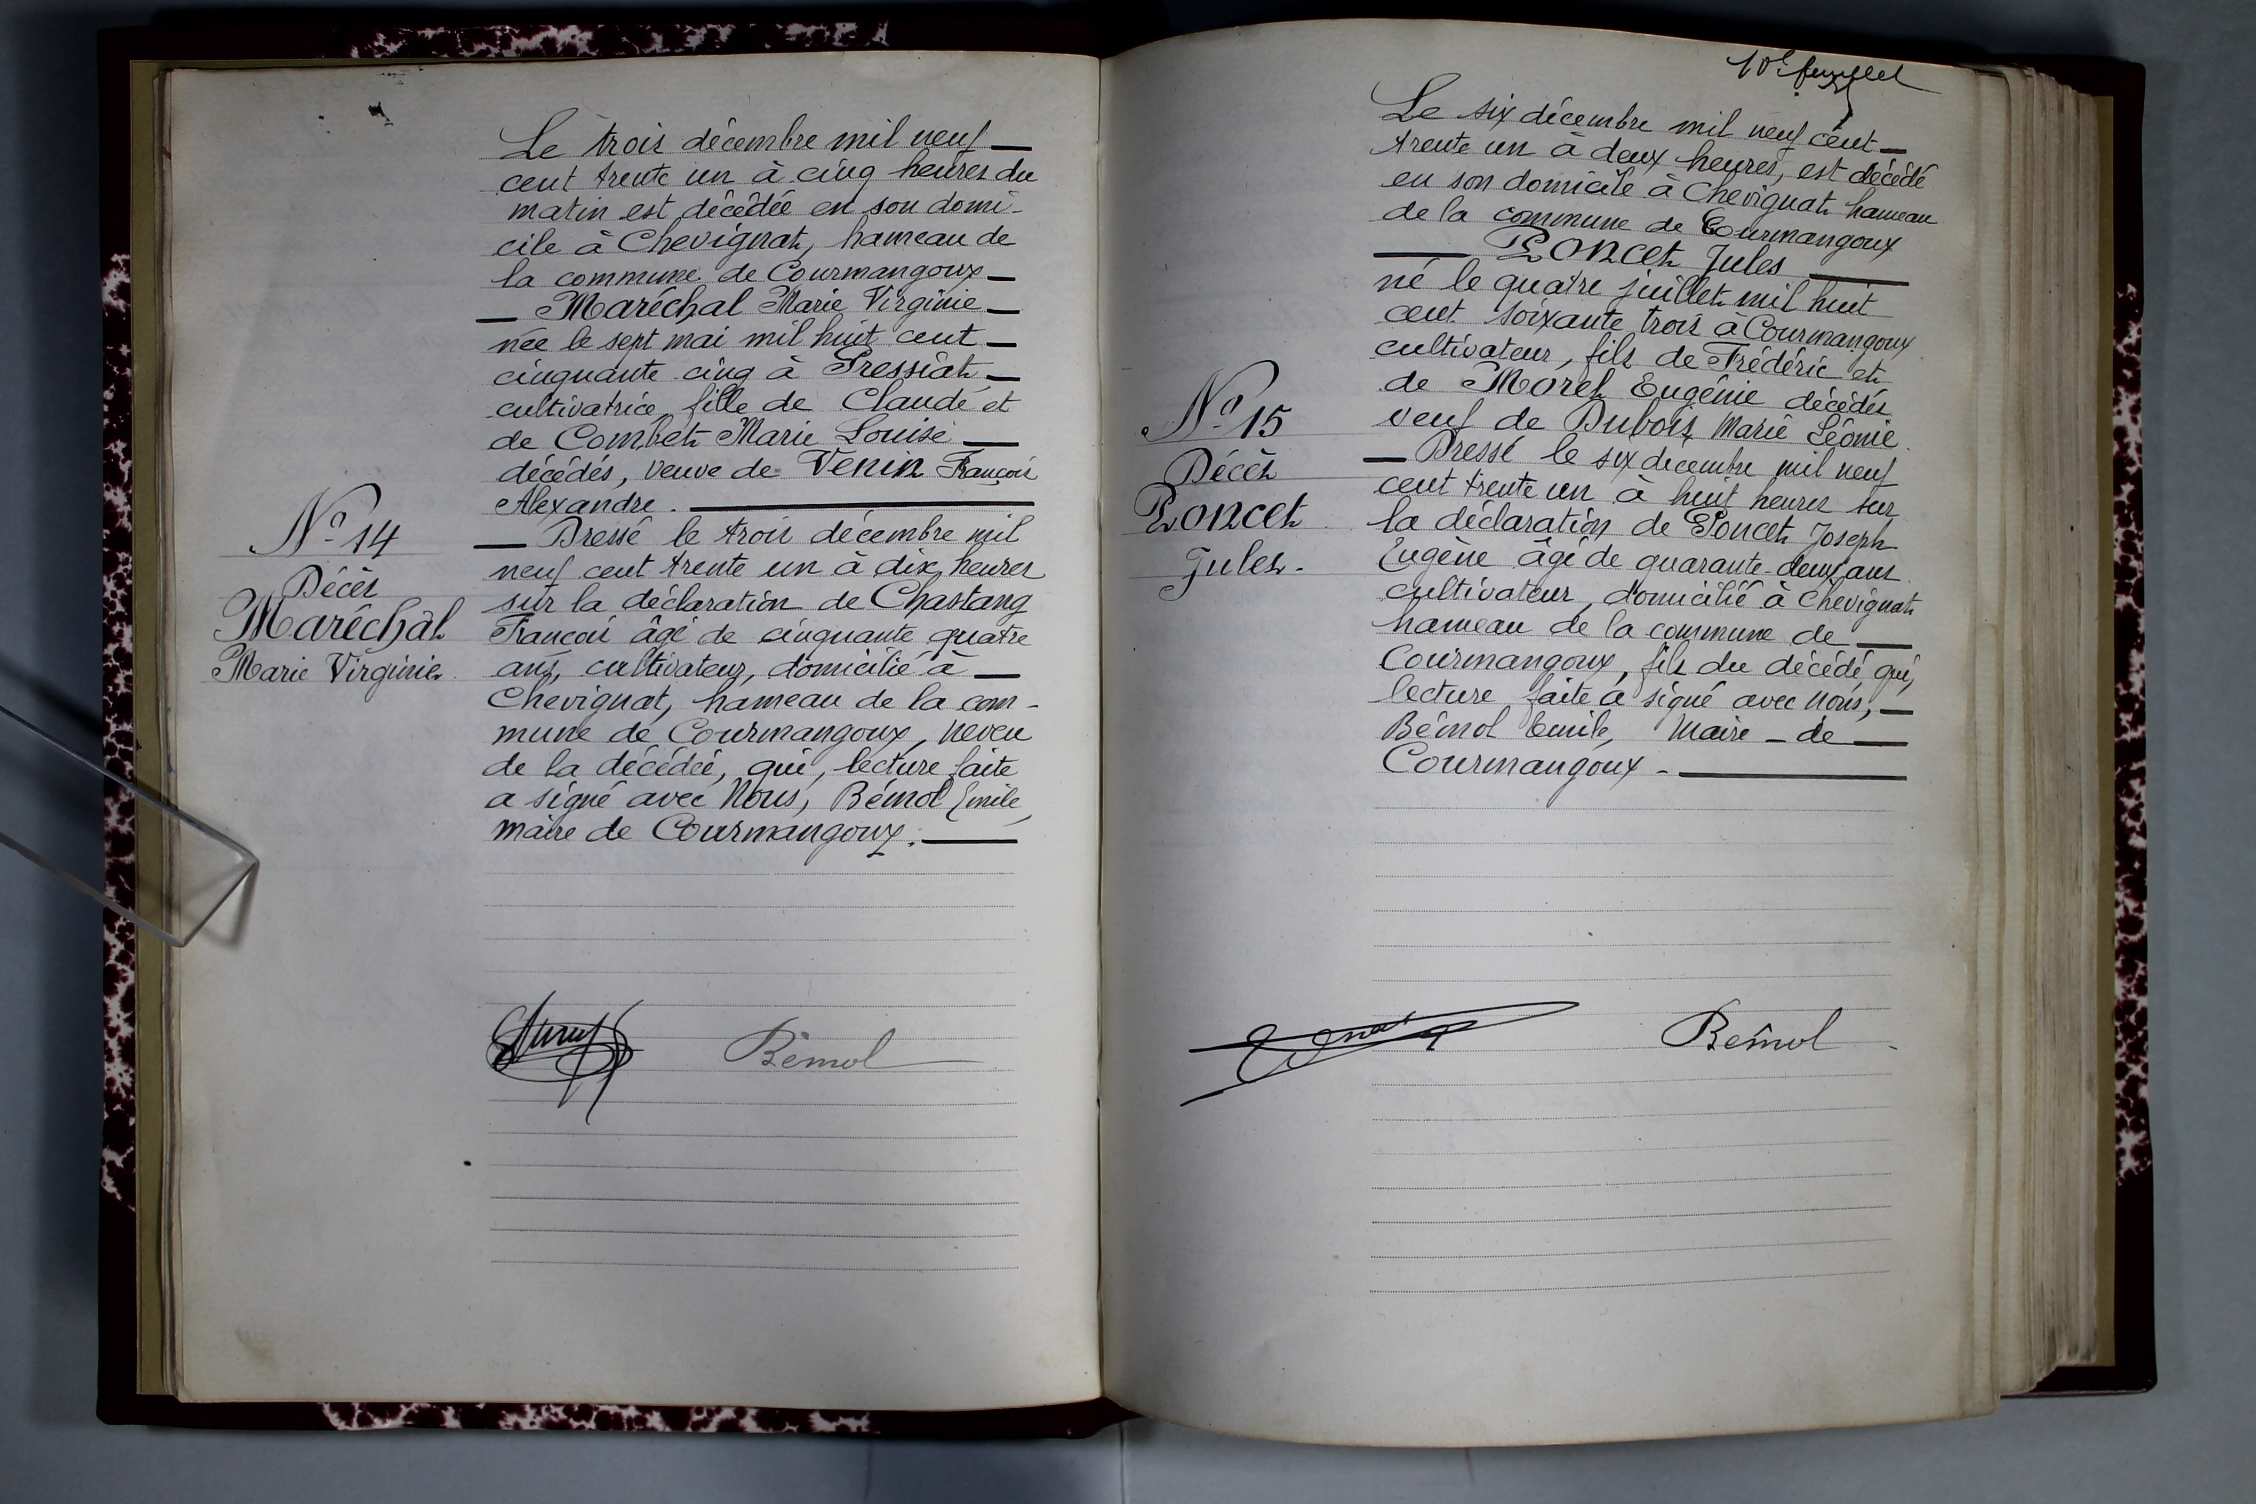 Le trois décembre mil neuf
cent trente un à cinq heures du
matin est décédée en son domi-
cile à Chevignat, hameau de
la commune de Courmangoux
Maréchal Marie Virginie
née le sept mai mil huit cent
cinquante cinq à Pressiat
cultivatrice, fille de Claude et
de Combet Marie Louise
décédés, veuve de Venin François
Alexandre.
N° 14
Décès
Maréchal
Marie Virginie.
Dressé le trois décembre mil
neuf cent trente un à dix heures
sur la déclaration de Chastang
François âgé de cinquante quatre
ans, cultivateur, domicilié à
Chevignat, hameau de la com-
mune de Courmangoux, neveu
de la décédée, qui, lecture faite
a signé avec Nous, Bémol Emile,
maire de Courmangoux.
Bémol
10e feuillet
Le six décembre mil neuf cent
trente un à deux heures, est décédé
en son domicile à Chevignat hameau
de la commune de Courmangoux
Poncet Jules
né le quatre juillet mil huit
cent soixante trois à Courmangoux
cultivateur, fils de Frédéric et
de Morel Eugénie décédés
veuf de Dubois Marie Léonie.
N° 15
Décès
Poncet
Jules.
Dressé le six décembre mil neuf
cent trente un à huit heures sur
la déclaration de Poncet Joseph
Eugène âgé de quarante-deux ans
cultivateur, domicilié à Chevignat
hameau de la commune de
Courmangoux, fils du décédé, qui,
lecture faite a signé avec Nous,
Bémol Emile, Maire de
Courmangoux.
Bémol